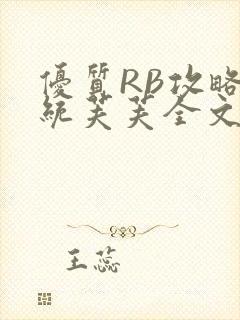 優質RB攻略
統芙芙全文
王蕊